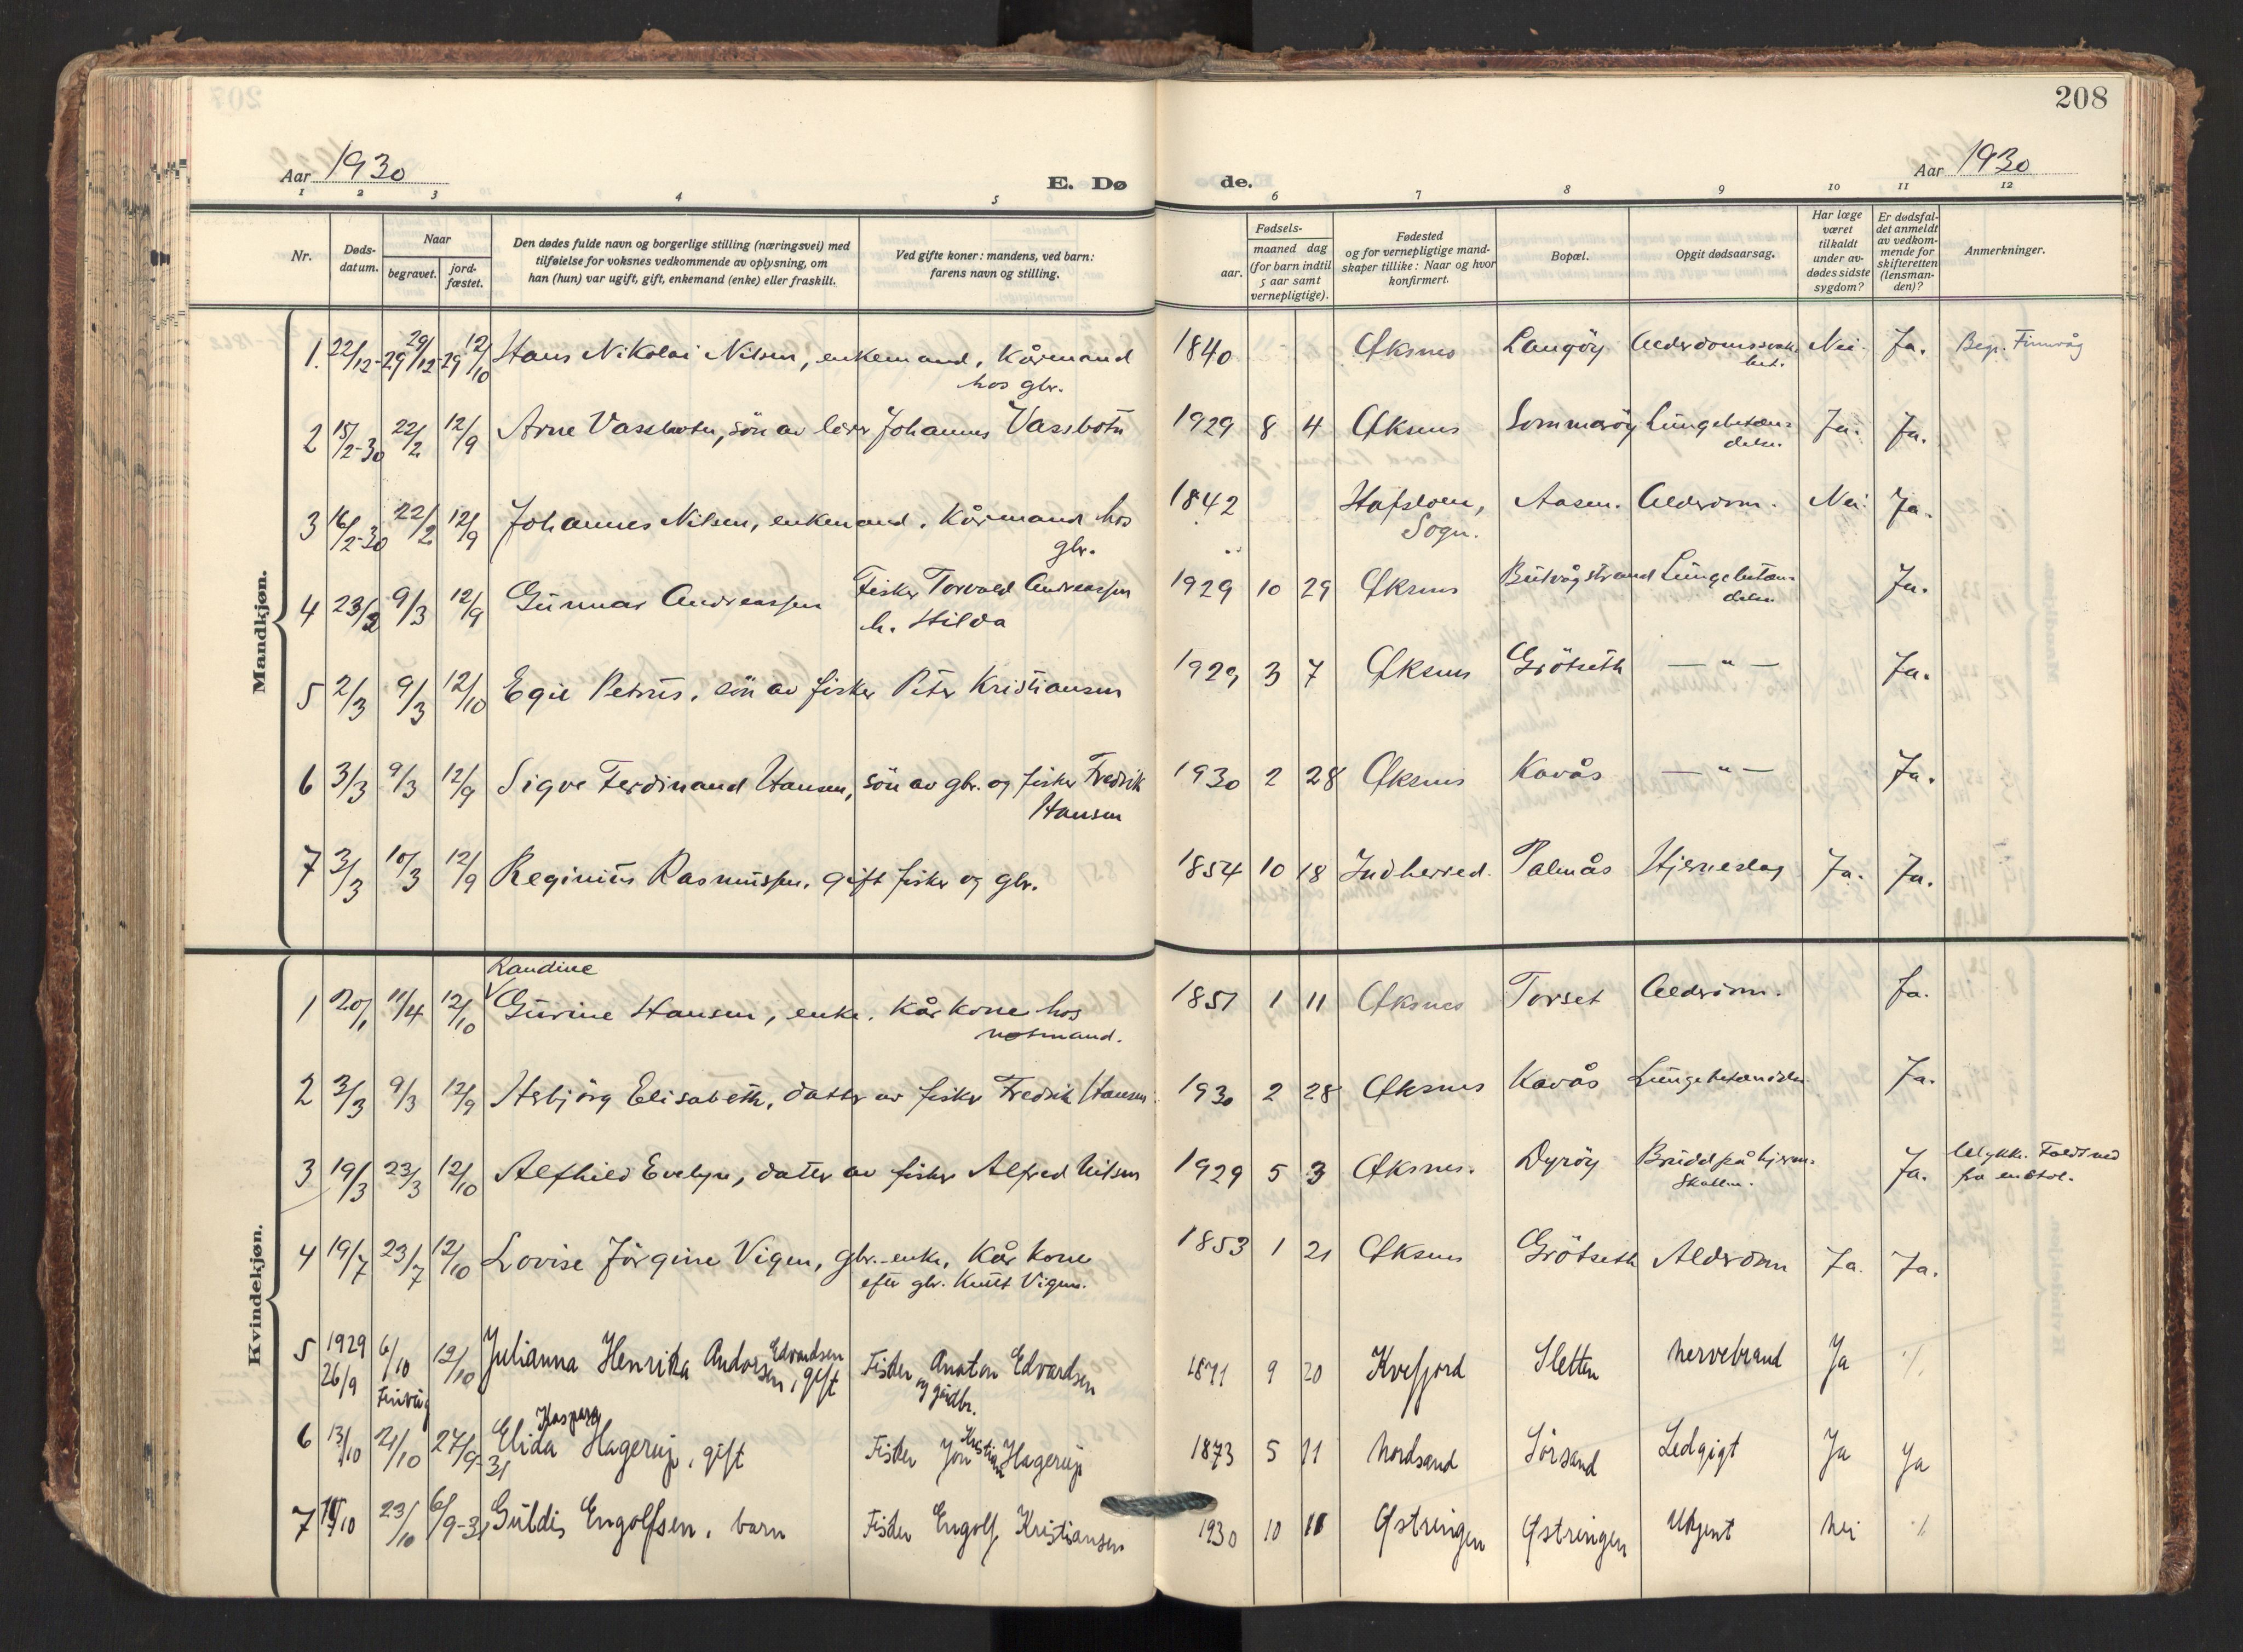 208
Aar 1930
E. Dø
de.
Aar 1930
1 2 3 4 5 6 7 8 9 10 11 12
Nr.
Døds-
datum.
Naar
begravet.
jord-
fæstet.
Den dødes fulde navn og borgerlige stilling (næringsvei) med
tilføielse for voksnes vedkommende av oplysning, om
han (hun) var ugift, gift, enkemand (enke) eller fraskilt.
Ved gifte koner: mandens, ved barn:
farens navn og stilling.
Fødsels-
aar.
maaned dag
(for barn indtil
5 aar samt
vernepligtige).
Fødested
og for vernepligtige mand-
skaper tillike: Naar og hvor
konfirmert.
Bopæl.
Opgit dødsaarsag.
Har læge
været
tilkaldt
under av-
dødes sidste
sygdom?
Er dødsfal-
det anmeldt
av vedkom-
mende for
skifteretten
(lensman-
den)?
Anmerkninger.
Mandkjøn.
1. 22/12-29 29/12-29 12/10 Hans Nikolai Nilsen, enkemand, Kårmand 1840 Øksnes Langöy Nei. Ja. Begr. Finnvåg
hos gbr.
2 15/2-30 22/2 12/9 Arne Vassbotn, sön av Johannes Vassbotn 1929 8 4 Øksnes Sommaröy Lungebetæn-
delse. Ja. Ja.
3 16/2-30 22/2 12/9 Johannes Nilsen, enkemand. Kårmand hos 1842 Hafsloen, Aasen. Alderdom. Nei. Ja.
gbr. Sogn.
4 23/2 9/3 12/9 Gunnar Andreassen Fisker Torvald Andreassen 1929 10 29 Øksnes Lungebetæn-
delse. Ja.
h. Hilda
5 2/3 9/3 12/10 Egil Petrus, sön av fisker Peter Kristiansen 1929 3 7 Øksnes Grötseth — " — Ja.
6 3/3 9/3 12/9 Sigve Ferdinand Hansen, sön av gbr. og fisker Fredrik 1930 2 28 Øksnes Kavås — " — Ja.
Hansen
7 3/3 10/3 12/9 Reginius Rasmussen, gift fisker og gbr. 1854 10 18 Indherred. Palmås Hjerneslag Ja. Ja.
Kvindekjøn.
Randine
1 20/1 11/4 12/10 Gurine Hansen, enke. Kårkone hos 1851 1 11 Øksnes Torset Alderdom. Ja.
notmand.
2 3/3 9/3 12/9 Herbjörg Elisabeth, datter av fisker Fredrik Hansen 1930 2 28 Øksnes Kavås Lungebetændelse Ja.
3 19/3 23/3 12/10 Alfhild Evelyn, datter av fisker Alfred Nilsen 1929 5 3 Øksnes. Dyröy Brudd på hjerne-
skallen. Ja. Ulykke. Faldt ned
fra en stol.
4 19/7 23/7 12/10 Lovise Jörgine Vigen, gbr.-enke, Kårkone 1853 1 21 Øksnes Grötseth Alderdom Ja. Ja.
efter gbr. Knut Vigen.
5 1929 26/9 6/10 Finvåg 12/10 Julianna Henrika Andorsen Edvardsen, gift Fisker Anaton Edvardsen 1871 9 20 Kvefjord Sletten Nervebrand Ja %
og gårdbr.
6 13/10 21/10 27/9-31 Elida Kaspara Hagerup, gift Fisker Jon Kristian Hagerup 1873 5 11 Nordsand Sörsand Ledgigt Ja Ja
7 /10 23/10 6/9-31 Guldis Engolfsen, barn Fisker Engolf Kristiansen 1930 10 11 Østringen Østringen Ukjent Nei %